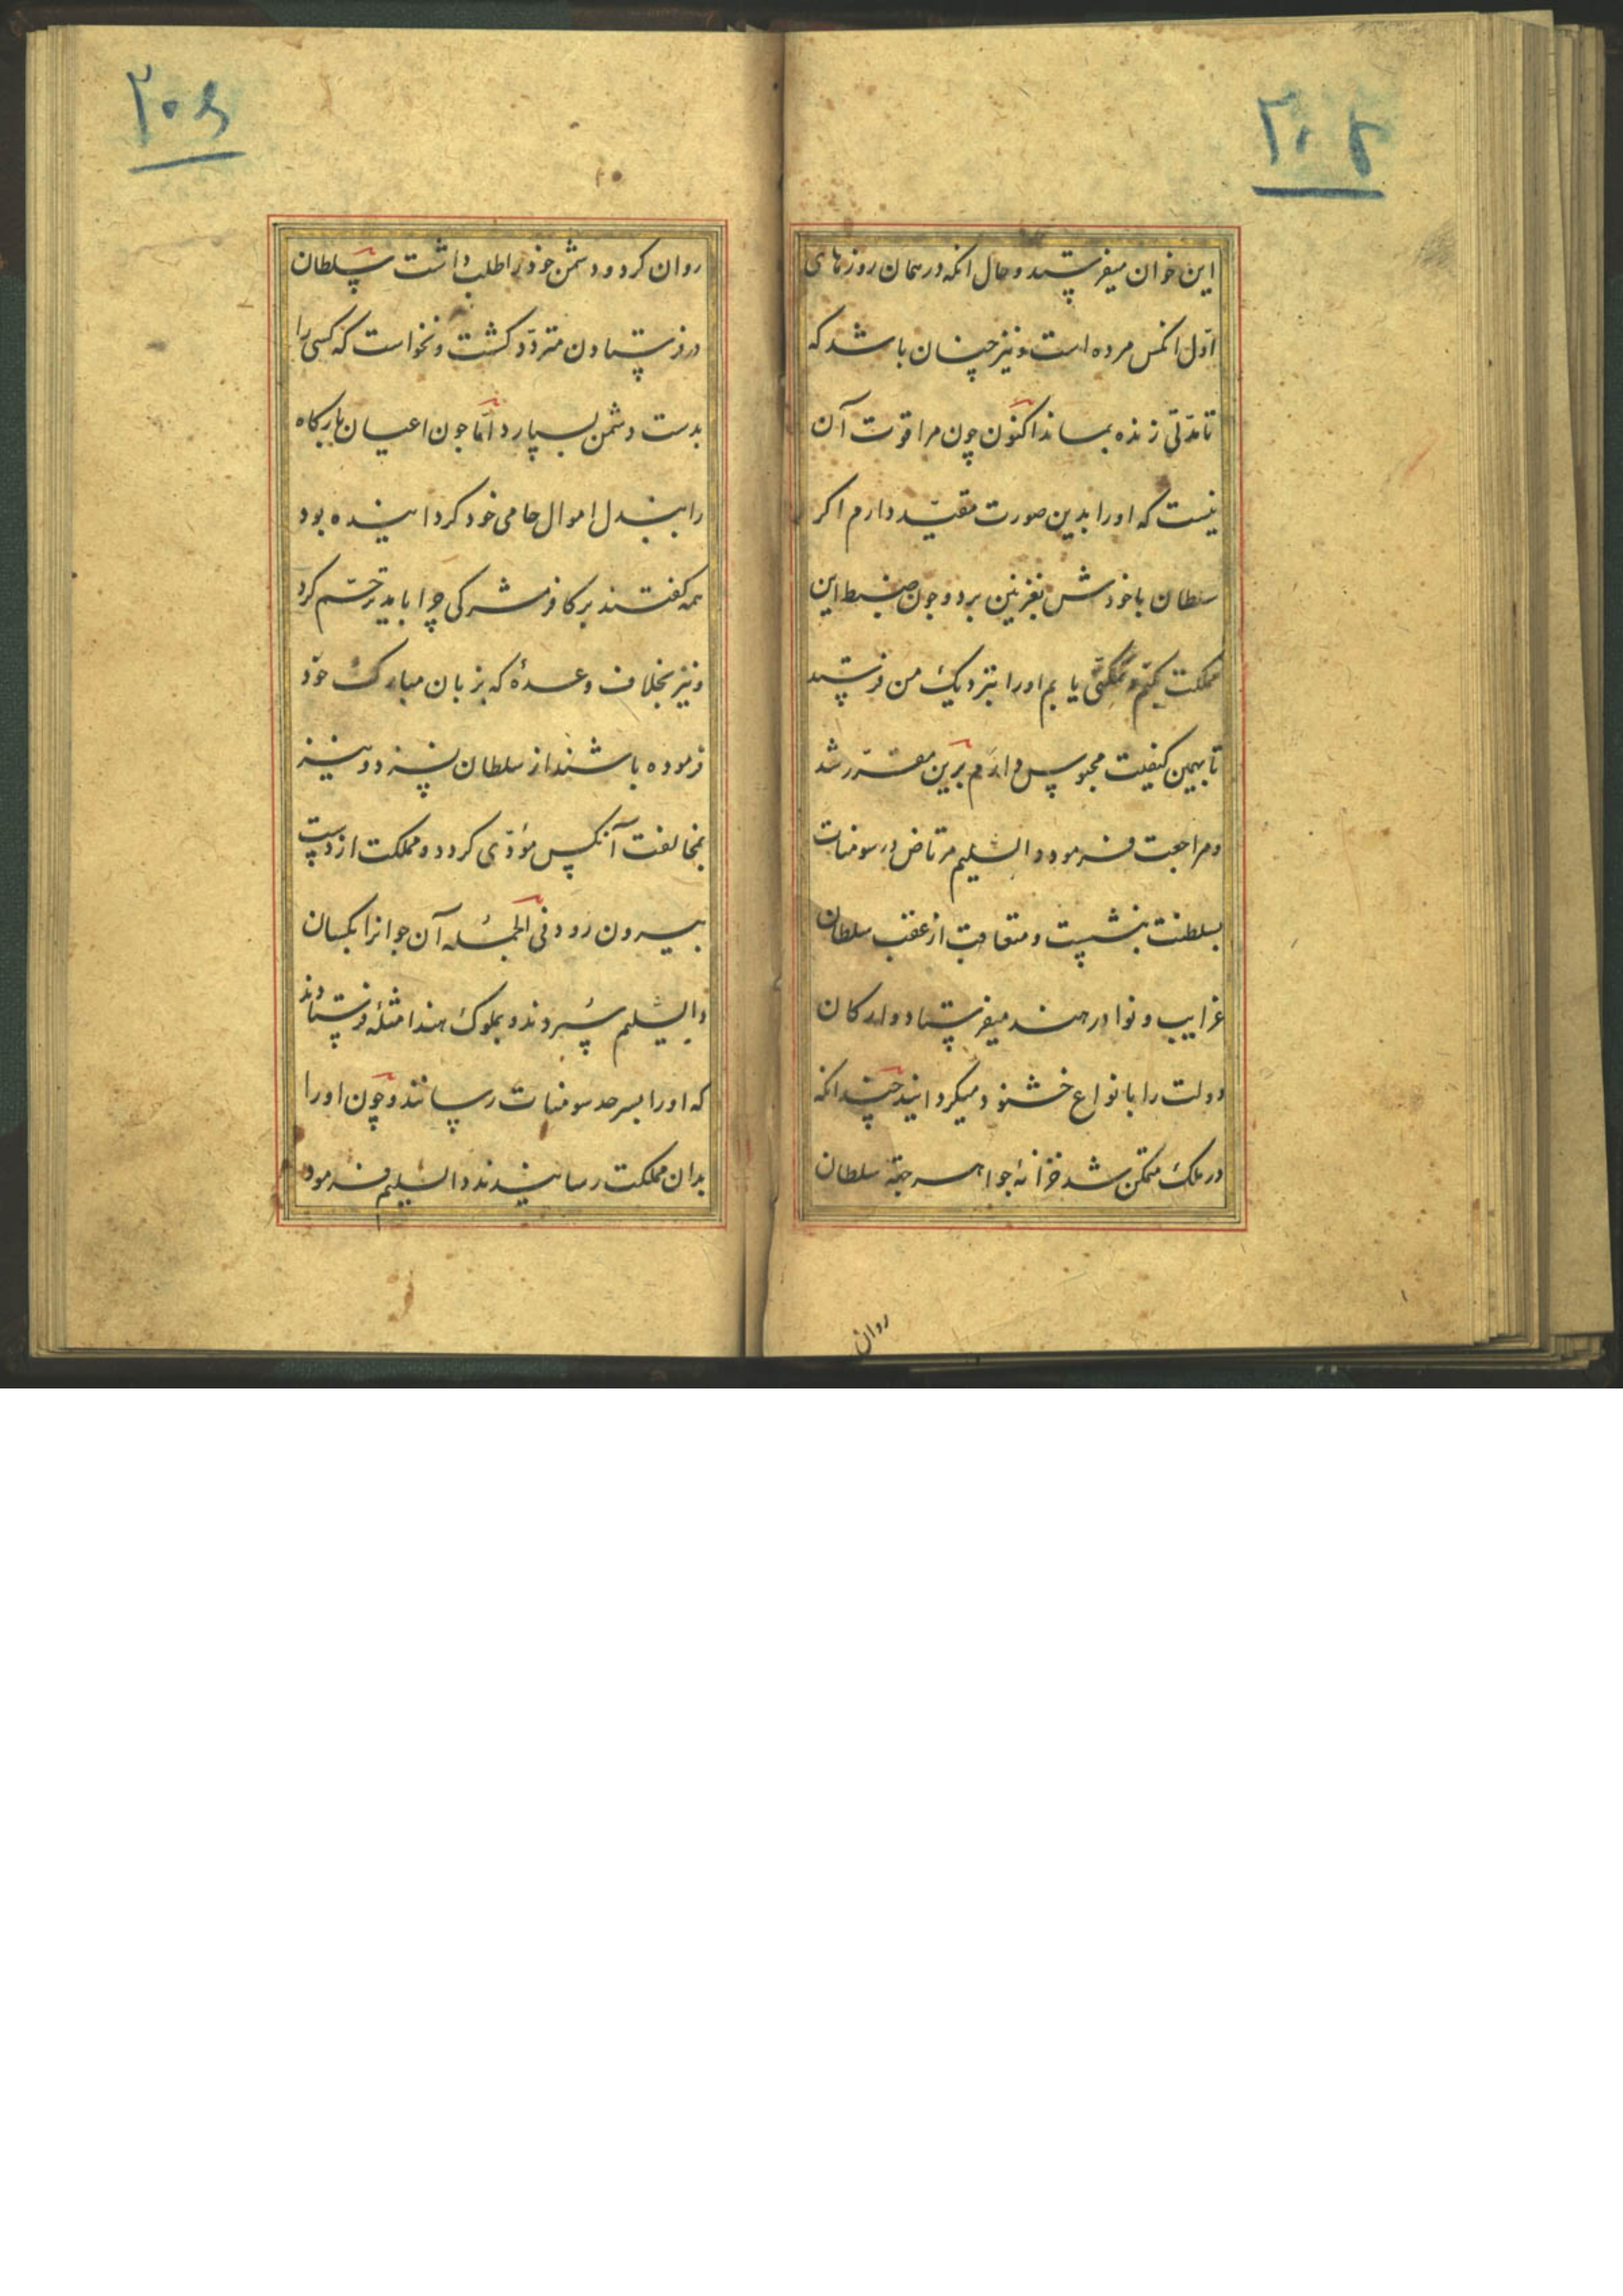 ۲۰۵
این خوان میفرستید و حال انکه در همان روزهای
اوّل انکس مرده است و نیز چنان باشد که
تا مدّتی زنده بماند اکنون چون مرا قوّت آن
نیست که او را بدین صورت مقیّد دارم اکر
سلطان با خودش بغزنین برد و چون ضبط این
مملکت بکنم و تمکنّی یابم او را بنزدیک من فرستید
تا بهمین کیفیت محبوس دارم برین مقرّر شد
و مراجعت فرمود دابشلیم مرتاض در سومنات
بسلطنت بنشست و متعاقب از عقب سلطان
غرایب و نوادر هند میفرستاد و ارکان
دولت را بانواع خشنود میکردانید چندانکه
در ملک متمکن شد خزانه جواهر بجهة سلطان
روان
۲۰۶
روان کرد و دشمن خود را طلب داشت سلطان
در فرستادن متردّد کشت و نخواست که کسی را
بدست دشمن بسپارد امّا چون اعیان بارکاه
را ببذل اموال حامی خود کردانیده بود
همه کفتند بر کافر مشرکی چرا باید ترحّم کرد
و نیز بخلاف وعدهٔ که بزبان مبارک خود
فرموده باشند از سلطان نسزد و نیز
بمخالفت آنکس مؤدّی کردد و مملکت از دست
بیرون رود فی الجمله آن جوانرا بکسان
دابشلیم سپردند و بملوک هند امثله فرستادند
که او را بسرحد سومنات رسانند و چون او را
بدان مملکت رسانیدند دابشلیم فرمود